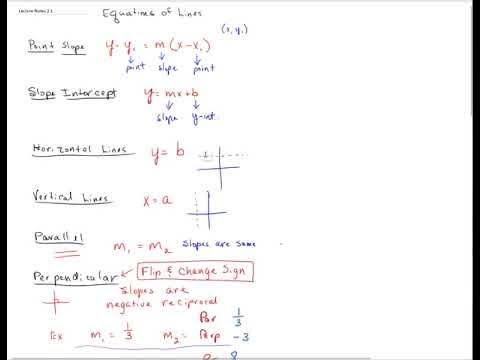 Lecture Notes 2.1
Equations of Lines
(x, y₁)
Point Slope y-y₁ = m(x-x₁)
point slope point
Slope Intercept y = mx+b
slope y-int
Horizontal Lines y = b
Vertical Lines x = a
Parallel m₁ = m₂ Slopes are same
Perpendicular Flip & Change Sign
Slopes are
negative reciprocal
Par 1/3
Ex m₁ = 1/3 m₂ = Perp -3
8